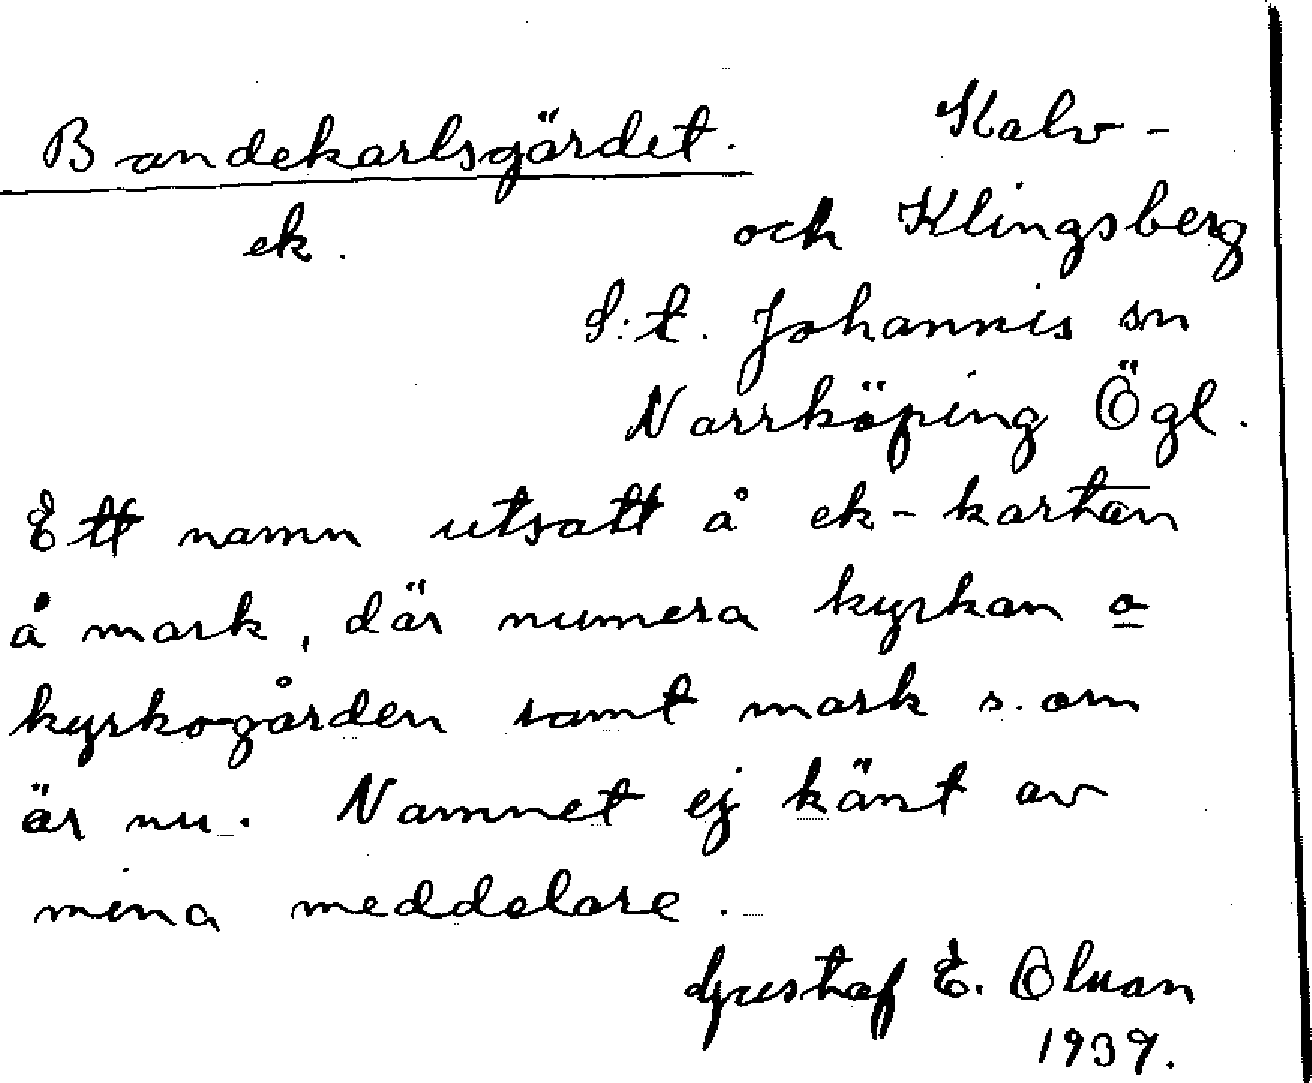 Bandekarlsgärdet. Kalv-
ek. och Klingsberg
S:t. Johannis sn
Norrköping Ögl.
Ett namn utsatt å ek-kartan
å mark, där numera kyrkan o
kyrkogården samt mark s. om
är nu. Namnet ej känt av
mina meddelare.
Gustaf E. Olsson
1939.